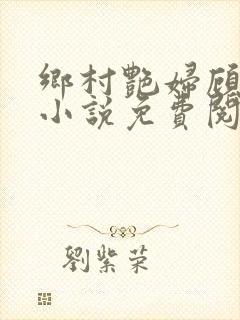 鄉村艷婦顧
小說免費閱
劉紫荣